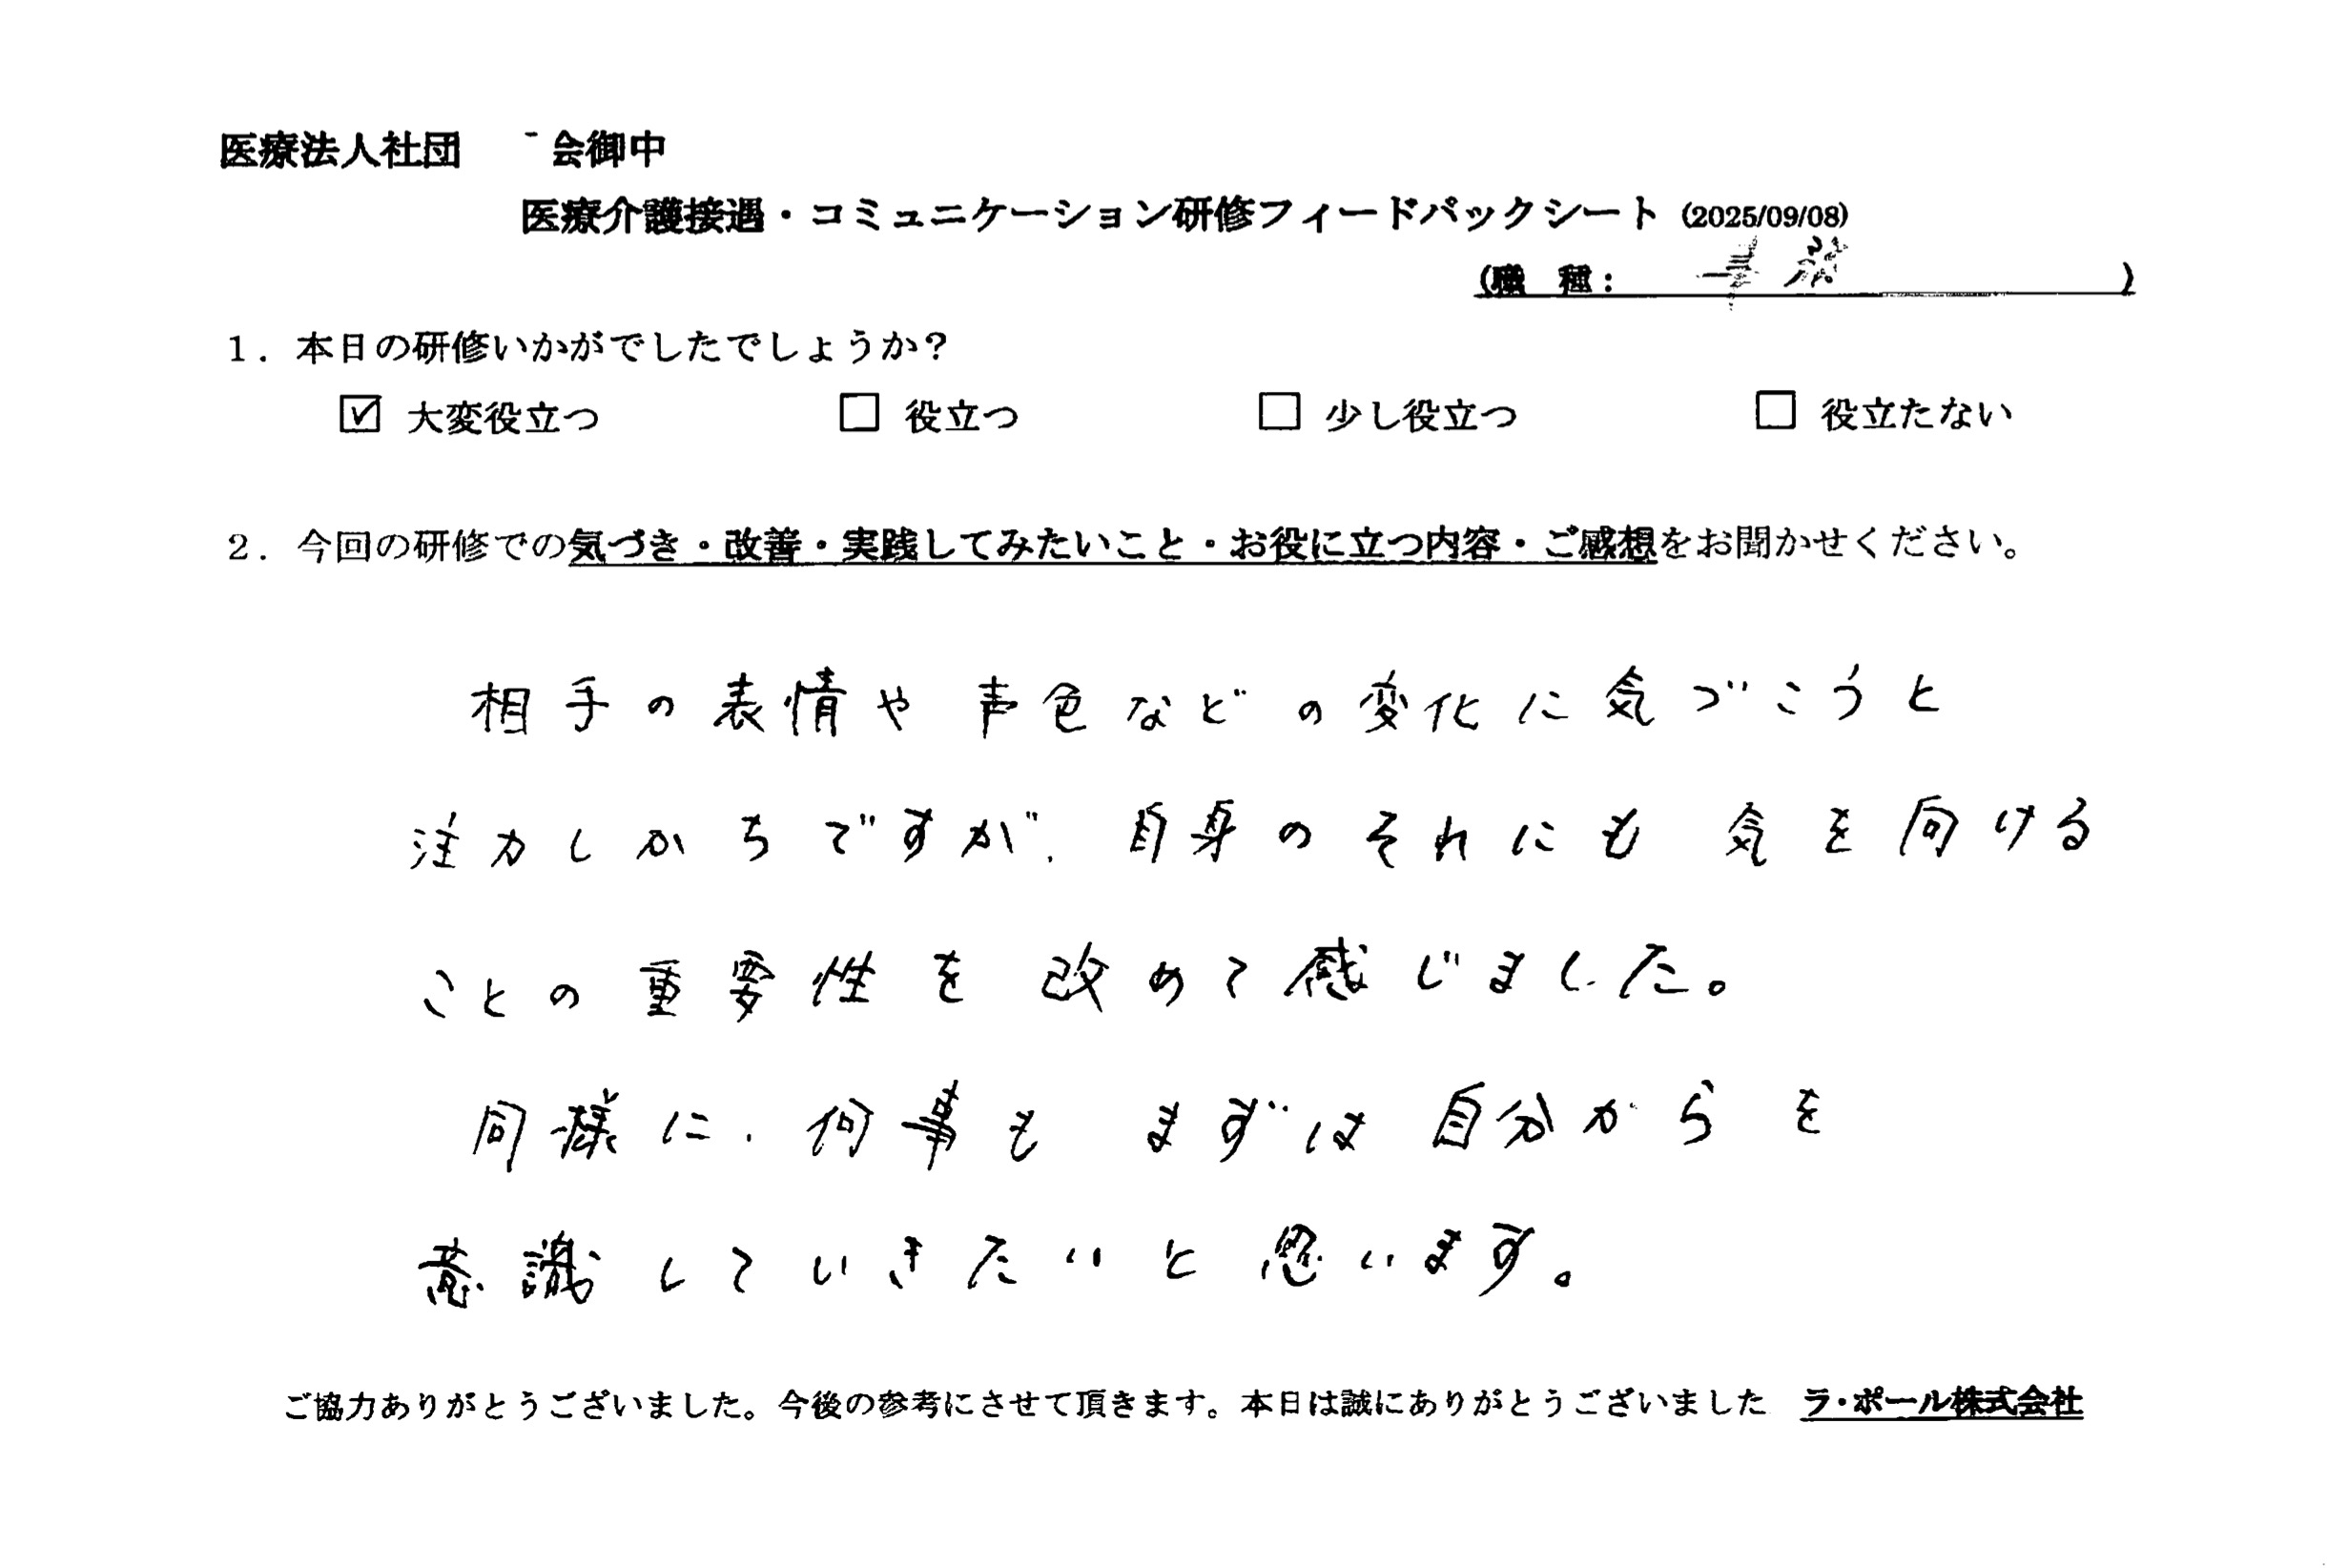 医療法人社団 会御中
医療介護接遇・コミュニケーション研修フィードバックシート (2025/09/08)
(職 種: )
1. 本日の研修いかがでしたでしょうか?
☑ 大変役立つ □ 役立つ □ 少し役立つ □ 役立たない
2. 今回の研修での気づき・改善・実践してみたいこと・お役に立つ内容・ご感想をお聞かせください。
相手の表情や声色などの変化に気づこうと
注力しがちですが、自身のそれにも気を向ける
ことの重要性を改めて感じました。
同様に、何事もまずは自分からを
意識していきたいと思います。
ご協力ありがとうございました。今後の参考にさせて頂きます。本日は誠にありがとうございました ラ・ポール株式会社